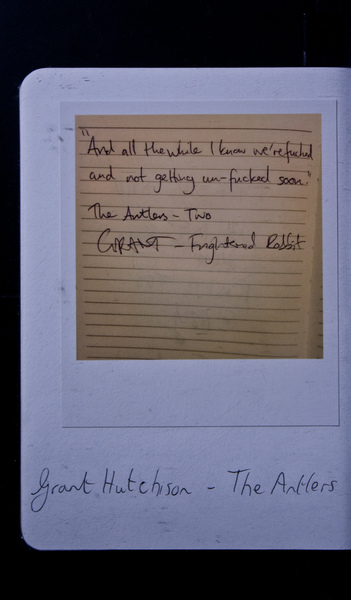 "And all the while I know we're fucked
and not getting un-fucked soon."
The Antlers - Two
GRANT - Frightened Rabbit
Grant Hutchison - The Antlers